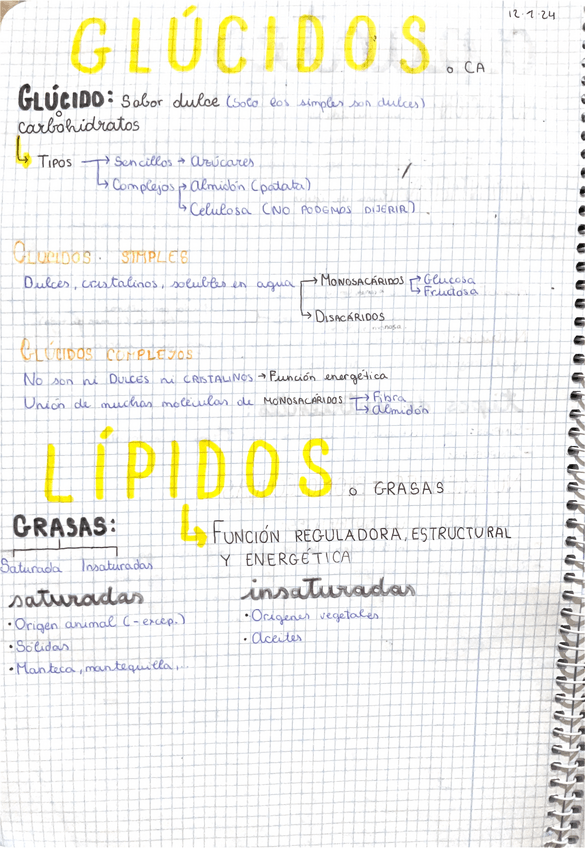 12-1-24
GLÚCIDOS o CA
GLÚCIDO: Sabor dulce (solo los simples son dulces)
o
carbohidratos
TIPOS → Sencillos → Azúcares
→ Complejos → Almidón (patata)
→ Celulosa (NO PODEMOS DIJERIR).
GLÚCIDOS. SIMPLES
Dulces, cristalinos, solubles en agua → MONOSACÁRIDOS → Glucosa
→ Fructosa
→ DISACÁRIDOS
GLÚCIDOS COMPLEJOS
No son ni DULCES ni CRISTALINOS → Función energética
Unión de muchas moléculas de MONOSACÁRIDOS → Fibra
→ Almidón
LÍPIDOS o GRASAS
GRASAS: → FUNCIÓN REGULADORA, ESTRUCTURAL
Y ENERGÉTICA
Saturada Insaturadas
saturadas
• Origen animal (-excep.)
• Sólidas
• Manteca, mantequilla,...
insaturadas
• Orígenes vegetales
• Aceites